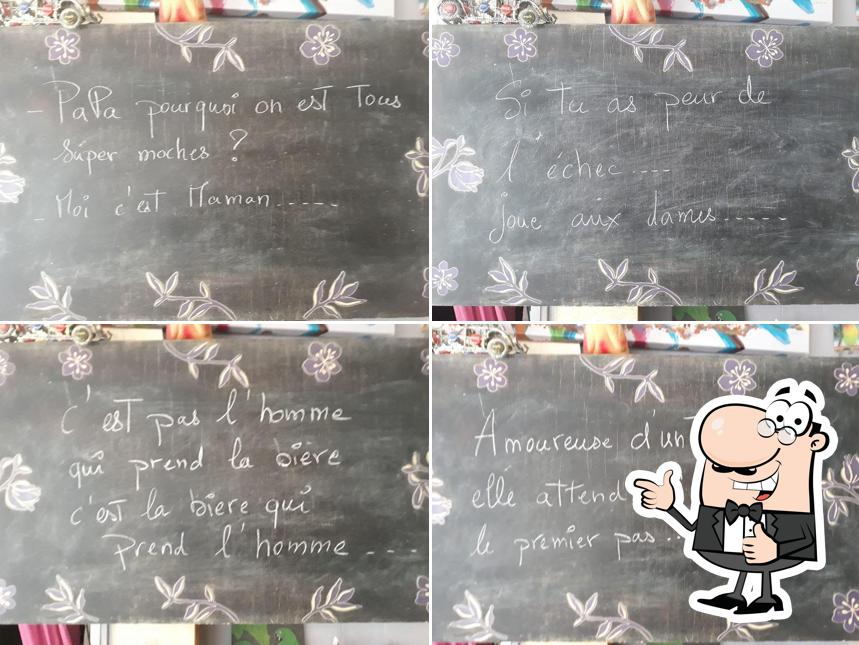 - PaPa pourquoi on est Tous
super moches ?
- Moi c'est Maman.----
Si tu as peur de
l'échec.---
joue aux dames-----
c'est pas l'homme
qui prend la bière
c'est la bière qui
prend l'homme ---
Amoureuse d'un
elle attend
le premier pas..